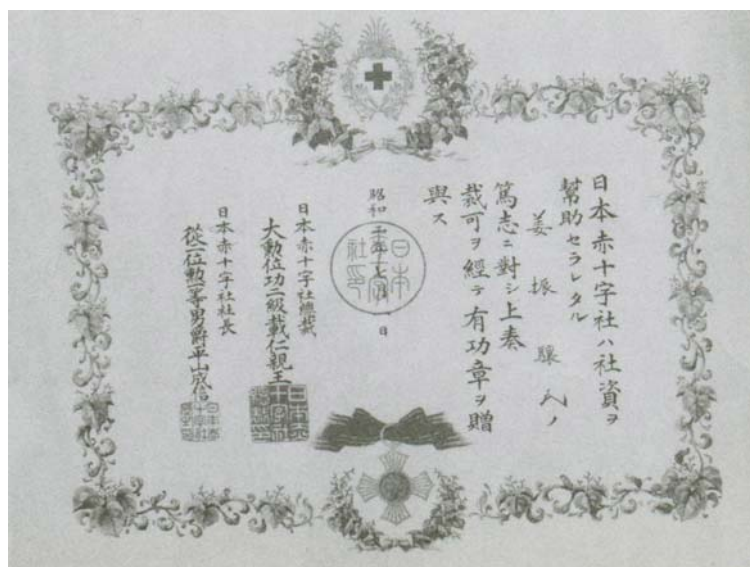 日本赤十字社ハ社資ヲ
幇助セラレタル
姜振驤氏ノ
篤志ニ對シ上奏
裁可ヲ經テ有功章ヲ贈
與ス
昭和 年 月 日
日本赤十字社印
日本赤十字社總裁
大勲位功二級載仁親王
日本赤十字社社長
從二位勲一等男爵平山成信